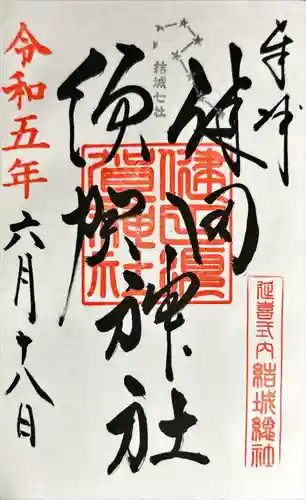 奉拝
結城七社
健田
須賀
神社
健田須
賀神社
延喜式内 結城總社
令和五年
六月十八日